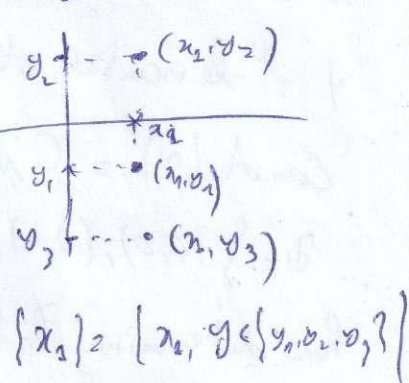 y₂ (x₁, y₂)
x₁
y₁ (x₁, y₁)
y₃ (x₁, y₃)
{x₁} = { x₁, y ∈ {y₁, y₂, y₃} }